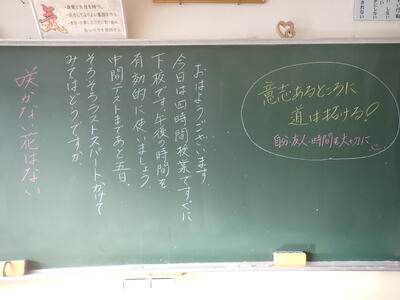 意志あるところに
道は拓ける!
自分・友人・時間を大切に
おはようございます
今日は四時間授業ですぐに
下校です。午後の時間を
有効的に使いましょう。
中間テストまであと五日。
そろそろラストスパートかけて
みてはどうですか。
咲かない花はない